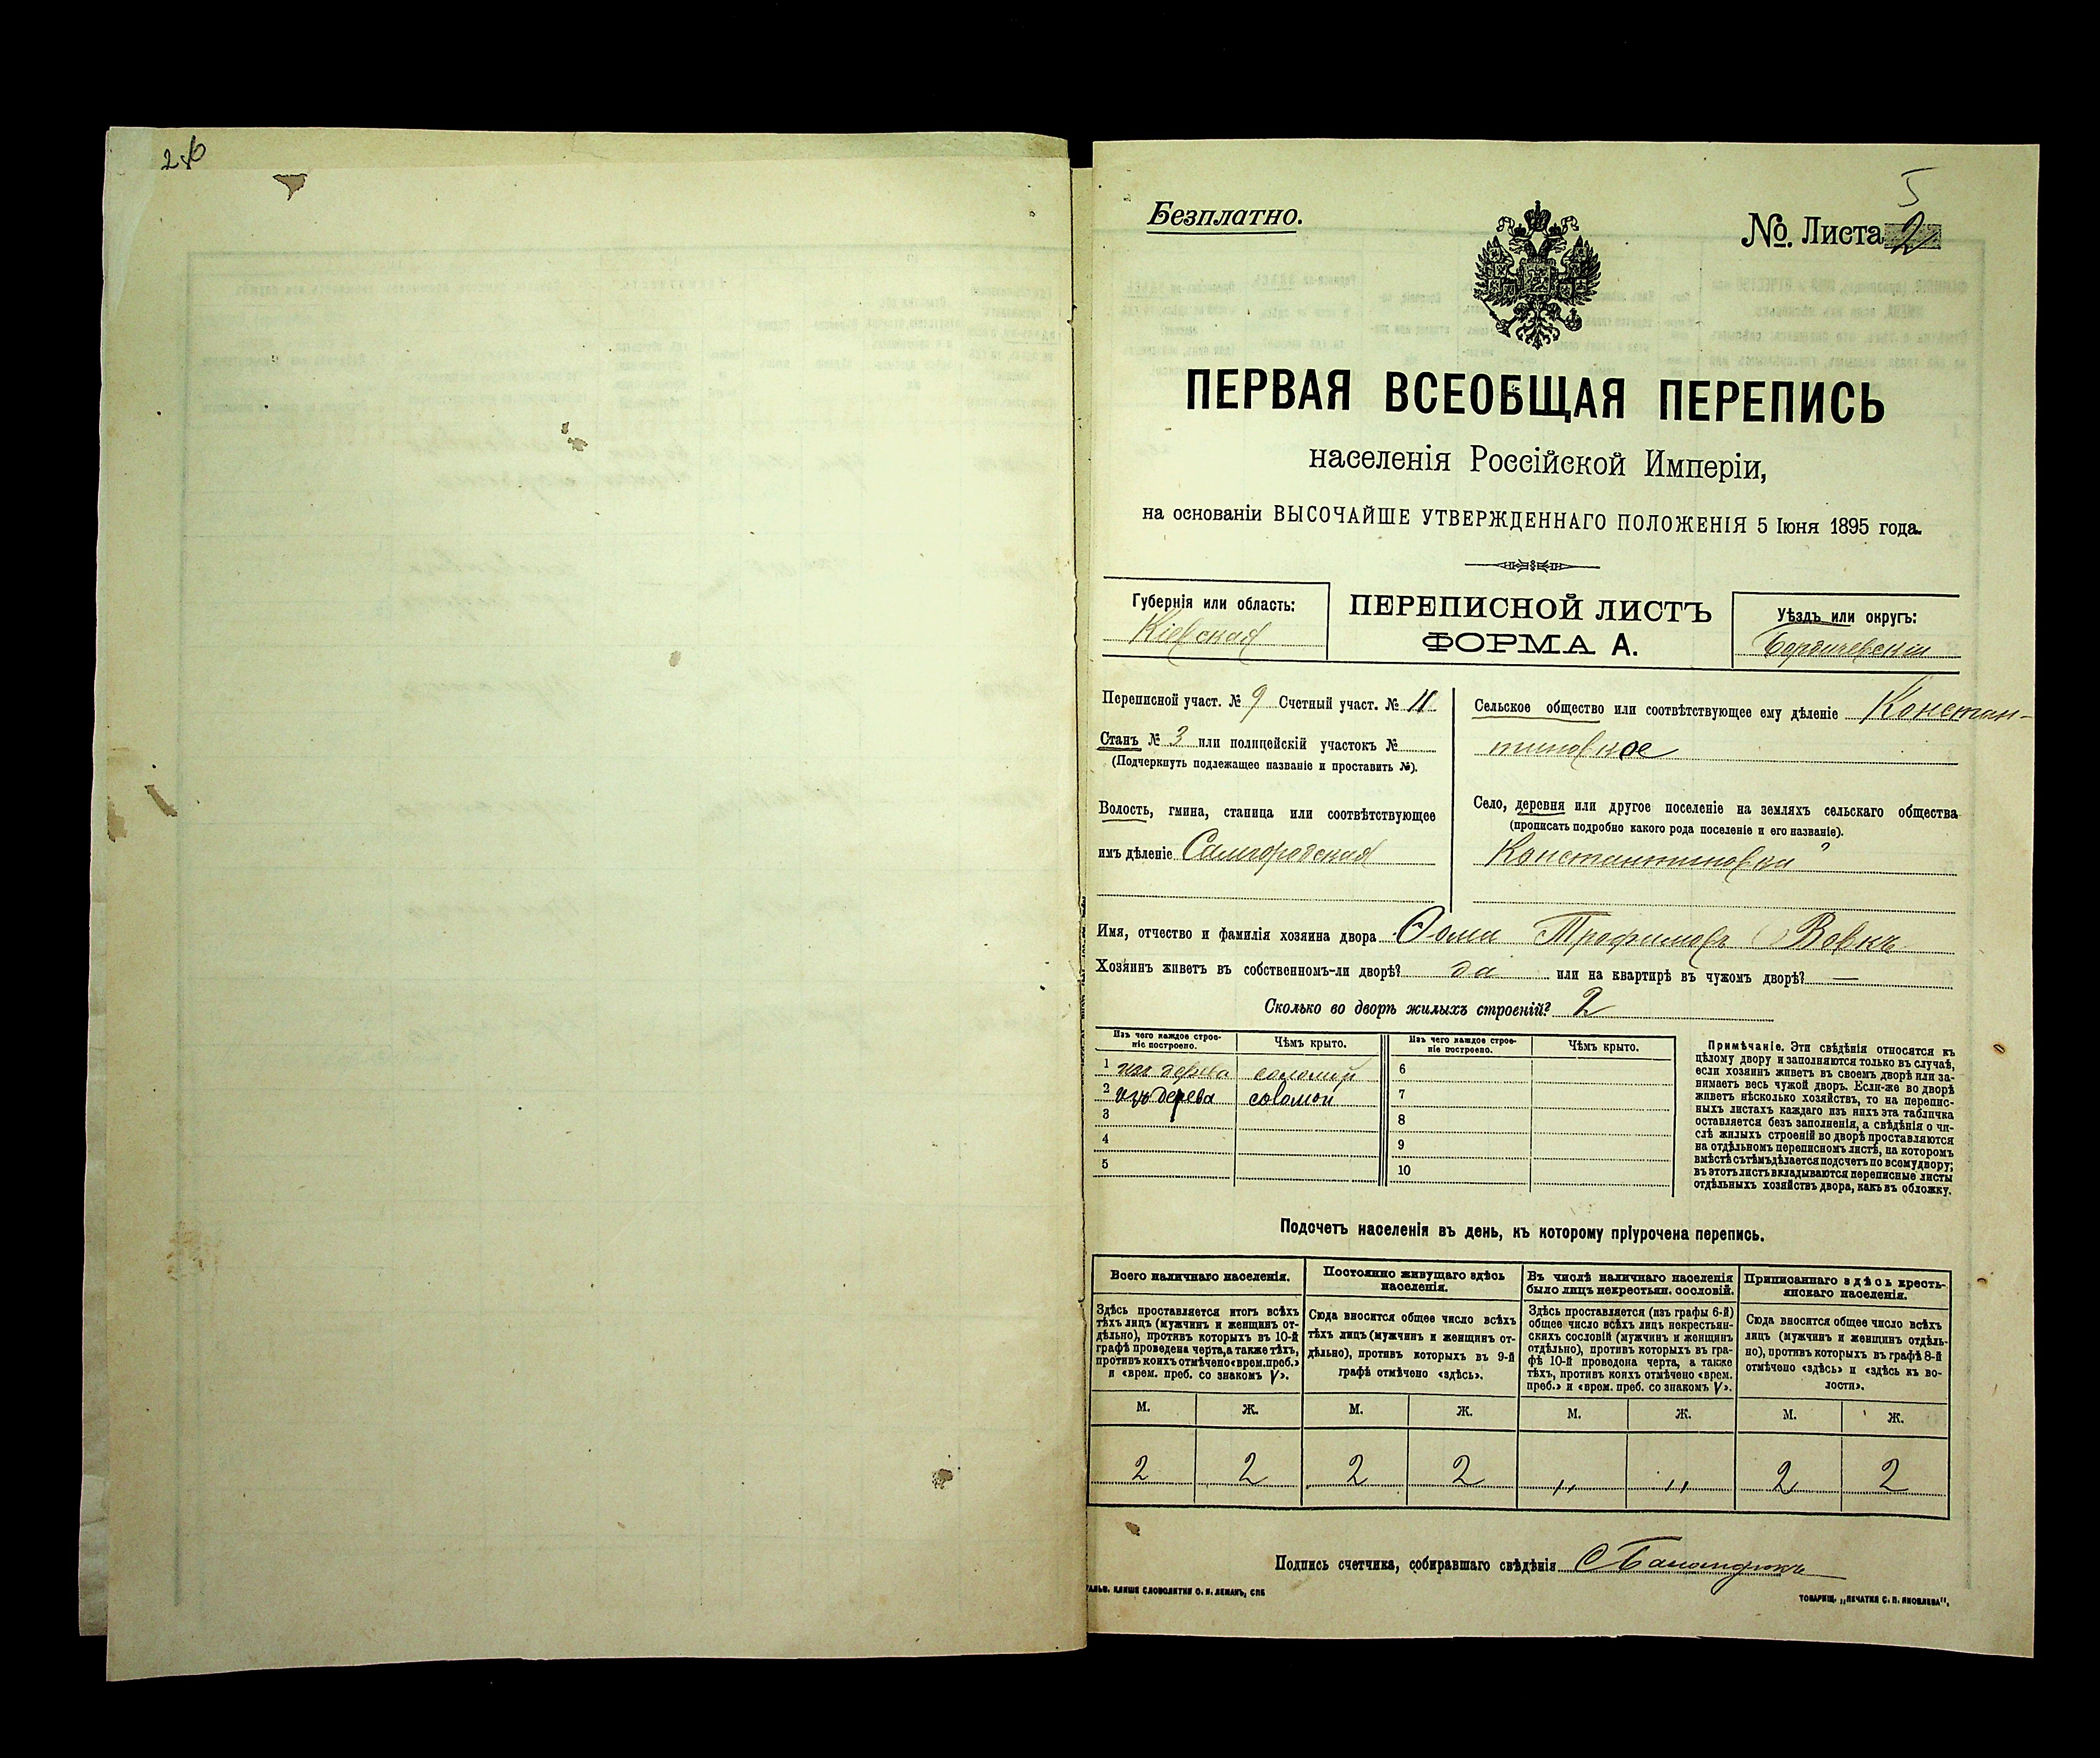 Безплатно.
5
№. Листа 2
ПЕРВАЯ ВСЕОБЩАЯ ПЕРЕПИСЬ
населенія Россійской Имперіи,
на основаніи ВЫСОЧАЙШЕ УТВЕРЖДЕННАГО ПОЛОЖЕНІЯ 5 Іюня 1895 года.
Губернія или область:
Кіевская
ПЕРЕПИСНОЙ ЛИСТЪ
ФОРМА А.
Уѣздъ или округъ:
Бердичевскій
Переписной участ. № 9 Счетный участ. № 11
Станъ № 3 или полицейскій участокъ №
(Подчеркнуть подлежащее названіе и проставить №).
Волость, гмина, станица или соотвѣтствующее
имъ дѣленіе Самгородская
Сельское общество или соотвѣтствующее ему дѣленіе Констан-
тиновкое
Село, деревня или другое поселеніе на земляхъ сельскаго общества
(прописать подробно какого рода поселеніе и его названіе).
Константиновка
Имя, отчество и фамилія хозяина двора Ѳома Трофимовъ Вовкъ
Хозяинъ живетъ въ собственномъ-ли дворѣ? да или на квартирѣ въ чужомъ дворѣ? —
Сколько во дворѣ жилыхъ строеній? 2
Изъ чего каждое строе-
ніе построено.
Чѣмъ крыто.
Изъ чего каждое строе-
ніе построено.
Чѣмъ крыто.
1 изъ дерева соломой 6
2 изъ дерева соломой 7
3 8
4 9
5 10
Примѣчаніе. Эти свѣдѣнія относятся къ
цѣлому двору и заполняются только въ случаѣ,
если хозяинъ живетъ въ своемъ дворѣ или за-
нимаетъ весь чужой дворъ. Если-же во дворѣ
живетъ нѣсколько хозяйствъ, то на перепис-
ныхъ листахъ каждаго изъ нихъ эта табличка
оставляется безъ заполненія, а свѣдѣнія о чи-
слѣ жилыхъ строеній во дворѣ проставляются
на отдѣльномъ переписномъ листѣ, на которомъ
вмѣстѣ съ тѣмъ дѣлается подсчетъ по всему двору;
въ этотъ листъ вкладываются переписные листы
отдѣльныхъ хозяйствъ двора, какъ въ обложку.
Подсчетъ населенія въ день, къ которому пріурочена перепись.
Всего наличнаго населенія.
Здѣсь проставляется итогъ всѣхъ
тѣхъ лицъ (мужчинъ и женщинъ от-
дѣльно), противъ которыхъ въ 10-й
графѣ проведена черта, а также тѣхъ,
противъ коихъ отмѣчено «врем. преб.»
и «врем. преб. со знакомъ V».
Постоянно живущаго здѣсь
населенія.
Сюда вносится общее число всѣхъ
тѣхъ лицъ (мужчинъ и женщинъ от-
дѣльно), противъ которыхъ въ 9-й
графѣ отмѣчено «здѣсь».
Въ числѣ наличнаго населенія
было лицъ некрестьян. сословій.
Здѣсь проставляется (изъ графы 6-й)
общее число всѣхъ лицъ некрестьян-
скихъ сословій (мужчинъ и женщинъ
отдѣльно), противъ которыхъ въ гра-
фѣ 10-й проведена черта, а также
тѣхъ, противъ коихъ отмѣчено «врем.
преб.» и «врем. преб. со знакомъ V».
Приписаннаго здѣсь кресть-
янскаго населенія.
Сюда вносится общее число всѣхъ
лицъ (мужчинъ и женщинъ отдѣль-
но), противъ которыхъ въ графѣ 8-й
отмѣчено «здѣсь» и «здѣсь къ во-
лости».
М. Ж. М. Ж. М. Ж. М. Ж.
2 2 2 2 ,, ,, 2 2
Подпись счетчика, собиравшаго свѣдѣнія
СЛОВОЛИТНИ О. И. ЛЕМАНЪ, СПБ
ТОВАРИЩ. „ПЕЧАТНЯ С. П. ЯКОВЛЕВА“.